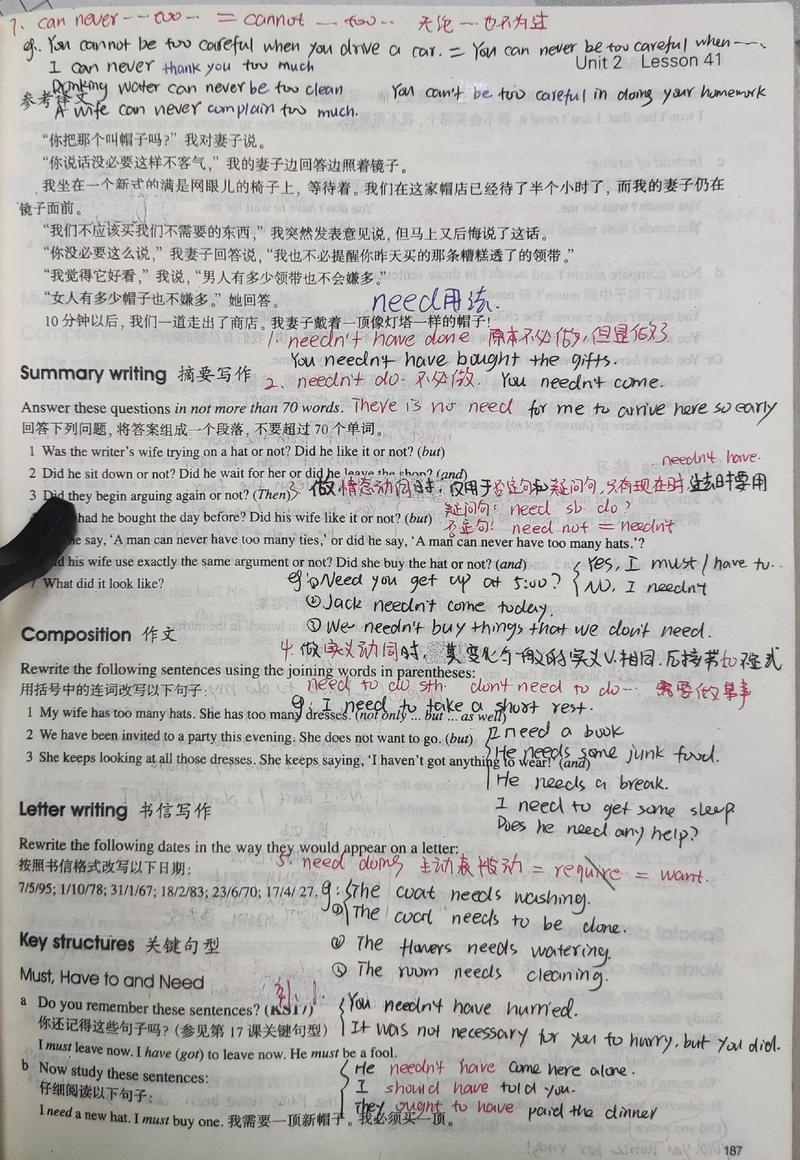 7. can never --- too -- = cannot -- too -- 无论 -- 也不为过
eg. You cannot be too careful when you drive a car. = You can never be too careful when ---.
I can never thank you too much
Unit 2 Lesson 41
Drinking water can never be too clean You can't be too careful in doing your homework
参考译文
A wife can never complain too much.
“你把那个叫帽子吗?”我对妻子说。
“你说话没必要这样不客气,”我的妻子边回答边照着镜子。
我坐在一个新式的满是网眼儿的椅子上,等待着。我们在这家帽店已经待了半个小时了,而我的妻子仍在
镜子面前。
“我们不应该买我们不需要的东西,”我突然发表意见说,但马上又后悔说了这话。
“你没必要这么说,”我妻子回答说,“我也不必提醒你昨天买的那条糟糕透了的领带。”
“我觉得它好看,”我说,“男人有多少领带也不会嫌多。”
“女人有多少帽子也不嫌多。”她回答。
need用法.
10分钟以后,我们一道走出了商店。我妻子戴着一顶像灯塔一样的帽子!
1. needn't have done 原本不必做,但是做了
You needn't have bought the gifts.
Summary writing 摘要写作
2. needn't do. 不必做. You needn't come.
Answer these questions in not more than 70 words. There is no need for me to arrive here so early
回答下列问题,将答案组成一个段落,不要超过70个单词。
1 Was the writer's wife trying on a hat or not? Did he like it or not? (but)
needn't have.
2 Did he sit down or not? Did he wait for her or did he leave the shop? (and)
3 Did they begin arguing again or not? (Then) 3. 做情态动词时,仅用于否定句和疑问句,只有现在时,过去时要用
had he bought the day before? Did his wife like it or not? (but) 疑问句: need sb do?
否定句: need not = needn't
he say, ‘A man can never have too many ties,’ or did he say, ‘A man can never have too many hats.’?
his wife use exactly the same argument or not? Did she buy the hat or not? (and) Yes, I must / have to.
7 What did it look like? eg: ① Need you get up at 5:00? No, I needn't
② Jack needn't come today.
③ We needn't buy things that we don't need.
Composition 作文
4. 做实义动词时,其变化与一般的实义V.相同.后接带to不定式
Rewrite the following sentences using the joining words in parentheses:
need to do sth. don't need to do --- 需要做某事
用括号中的连词改写以下句子:
eg: I need to take a short rest.
1 My wife has too many hats. She has too many dresses. (not only ... but ... as well)
I need a book
2 We have been invited to a party this evening. She does not want to go. (but)
He needs some junk food.
3 She keeps looking at all those dresses. She keeps saying, ‘I haven't got anything to wear!’ (and)
He needs a break.
I need to get some sleep
Letter writing 书信写作
Does he need any help?
Rewrite the following dates in the way they would appear on a letter:
按照书信格式改写以下日期:
5. need doing 主动表被动 = require = want.
7/5/95; 1/10/78; 31/1/67; 18/2/83; 23/6/70; 17/4/27. eg: The coat needs washing.
① The coat needs to be done.
Key structures 关键句型
② The flowers needs watering.
③ The room needs cleaning.
Must, Have to and Need
a Do you remember these sentences? (KS17) You needn't have hurried.
你还记得这些句子吗?(参见第17课关键句型) It was not necessary for you to hurry, but you did.
I must leave now. I have (got) to leave now. He must be a fool.
b Now study these sentences: He needn't have come here alone.
仔细阅读以下句子: I should have told you.
They ought to have paid the dinner
I need a new hat. I must buy one. 我需要一顶新帽子。我必须买一顶。
187